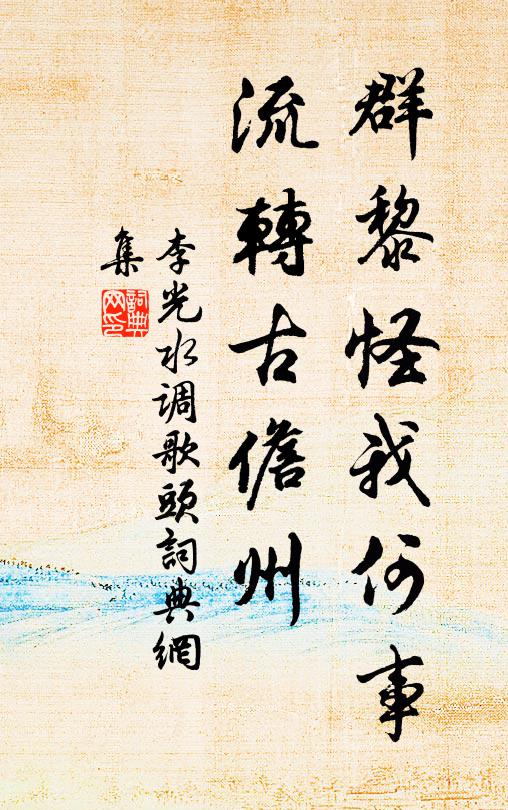 群黎怪我何事
流轉古儋州
李光水调歌頭詞典網
集
詞典網印